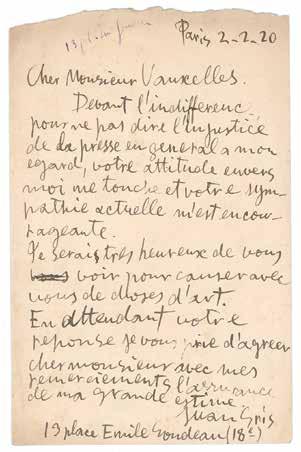 Paris 2-2-20
Cher Monsieur Vauxcelles.
Devant l'indifferenc
pour ne pas dire l'injustice
de la presse en general a mon
egard, votre attitude envers
moi me touche et votre sym-
pathie actuelle m'est encou-
rageante.
Je serais tres heureux de vous
voir pour causer avec
vous de choses d'art.
En attendant votre
reponse je vous prie d'agreer
cher monsieur avec mes
remerciements l'assurance
de ma grande estime
Juan Gris
13 place Emile Goudeau (18e)